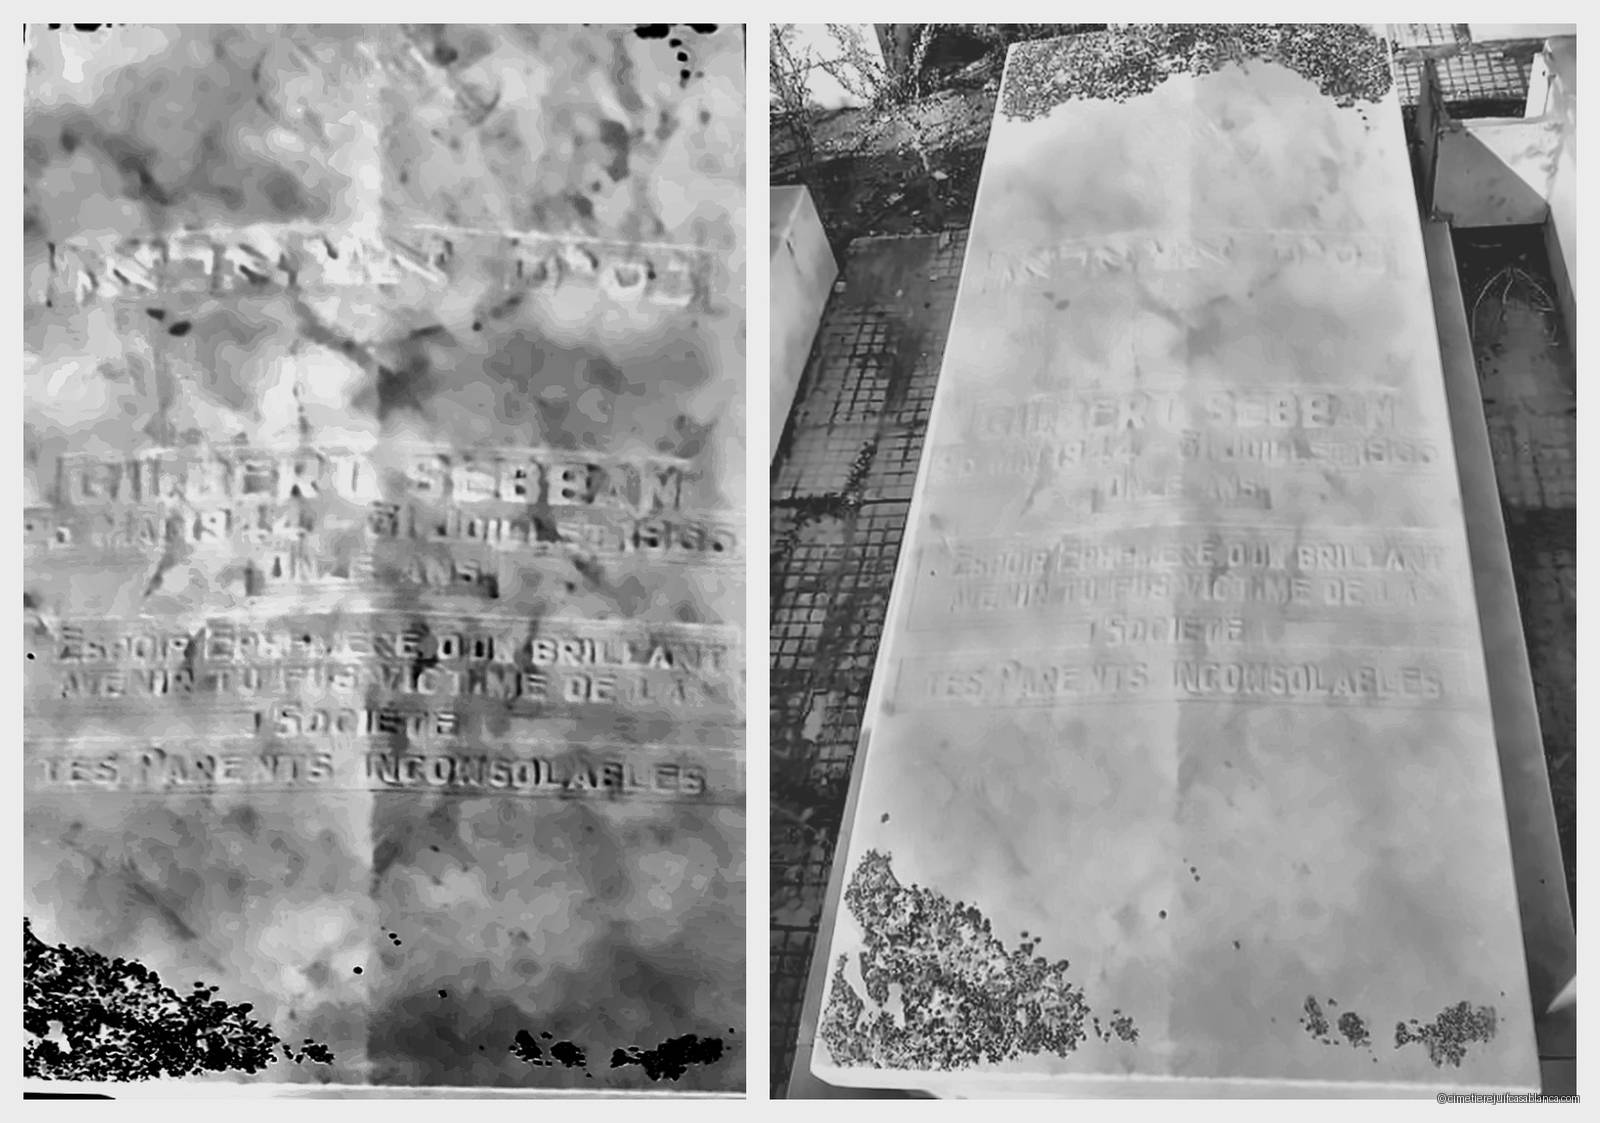 GILBERT SEBBAN
MAI 1944 31 JUILLET 1955
ONZE ANS
ESPOIR EPHEMERE D'UN BRILLANT
AVENIR TU FUS VICTIME DE LA
SOCIETE
TES PARENTS INCONSOLABLES
GILBERT SEBBAN
MAI 1944 31 JUILLET 1955
ONZE ANS
ESPOIR EPHEMERE D'UN BRILLANT
AVENIR TU FUS VICTIME DE LA
SOCIETE
TES PARENTS INCONSOLABLES
©cimetierejuifcasablanca.com